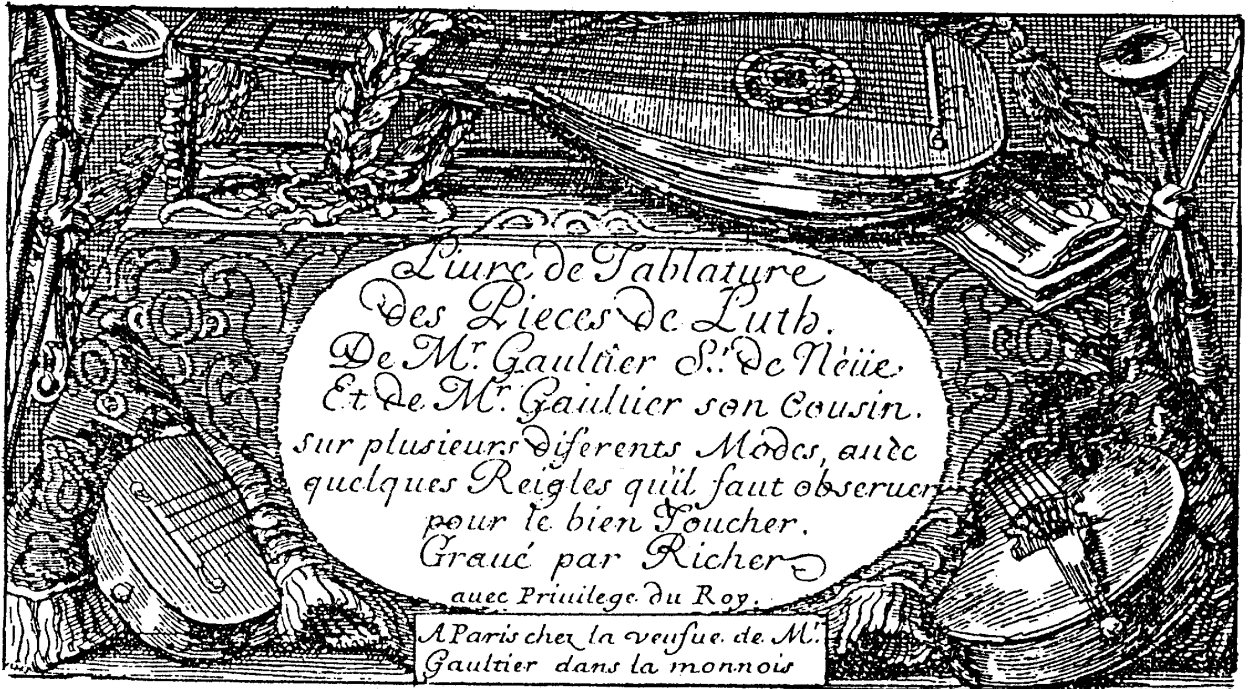 Liure de Tablature
des Pieces de Luth.
De Mr. Gaultier Sr. de Nèüe
Et de Mr. Gaultier son Cousin.
sur plusieurs diferents Modes, auec
quelques Reigles qu'il faut obseruer
pour le bien Toucher.
Graué par Richer
auec Priuilege du Roy.
A Paris chez la veufue de Mr.
Gaultier dans la monnois